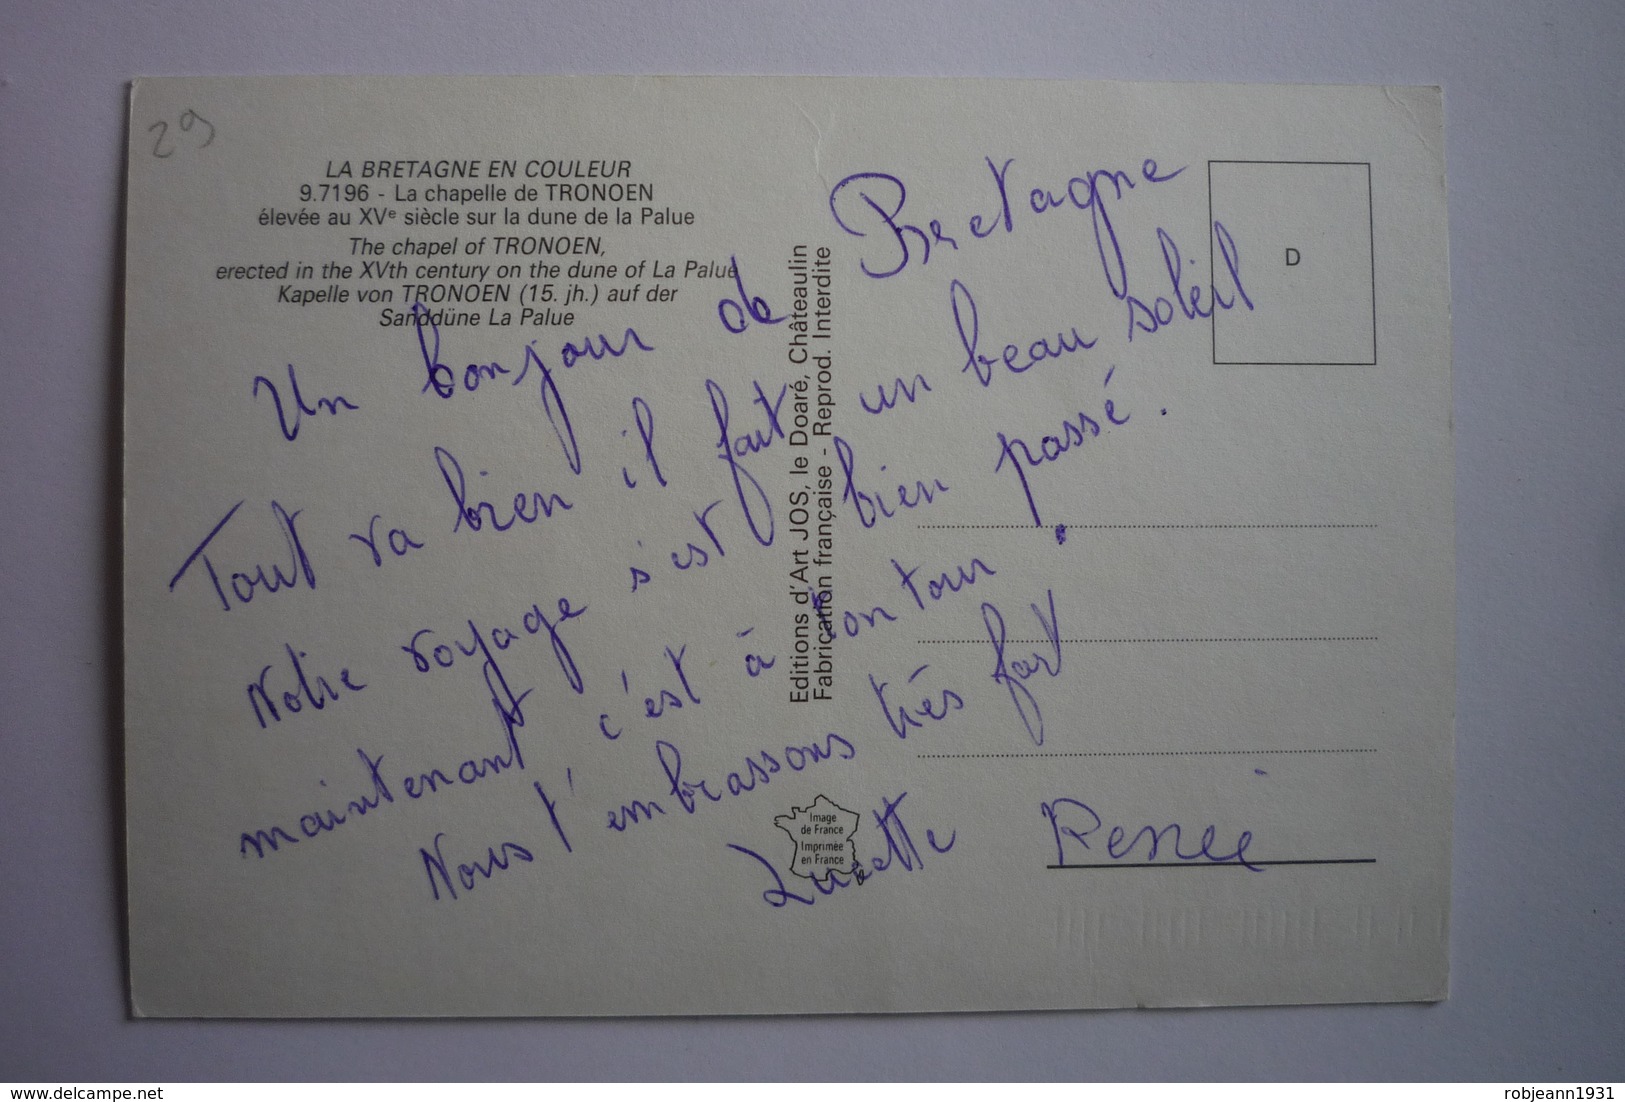 29
LA BRETAGNE EN COULEUR
9.7196 - La chapelle de TRONOEN
élevée au XVe siècle sur la dune de la Palue
The chapel of TRONOEN,
erected in the XVth century on the dune of La Palue
Kapelle von TRONOEN (15. jh.) auf der
Sanddüne La Palue
Un bonjour de Bretagne
Tout va bien il fait un beau soleil
Notre voyage s'est bien passé.
maintenant c'est à ton tour.
Nous t'embrassons très fort
Lucette Renée
Editions d'Art JOS, le Doaré, Châteaulin
Fabrication française - Reprod. Interdite
D
Image
de France
Imprimée
en France
delcampe.net
robjeann1931